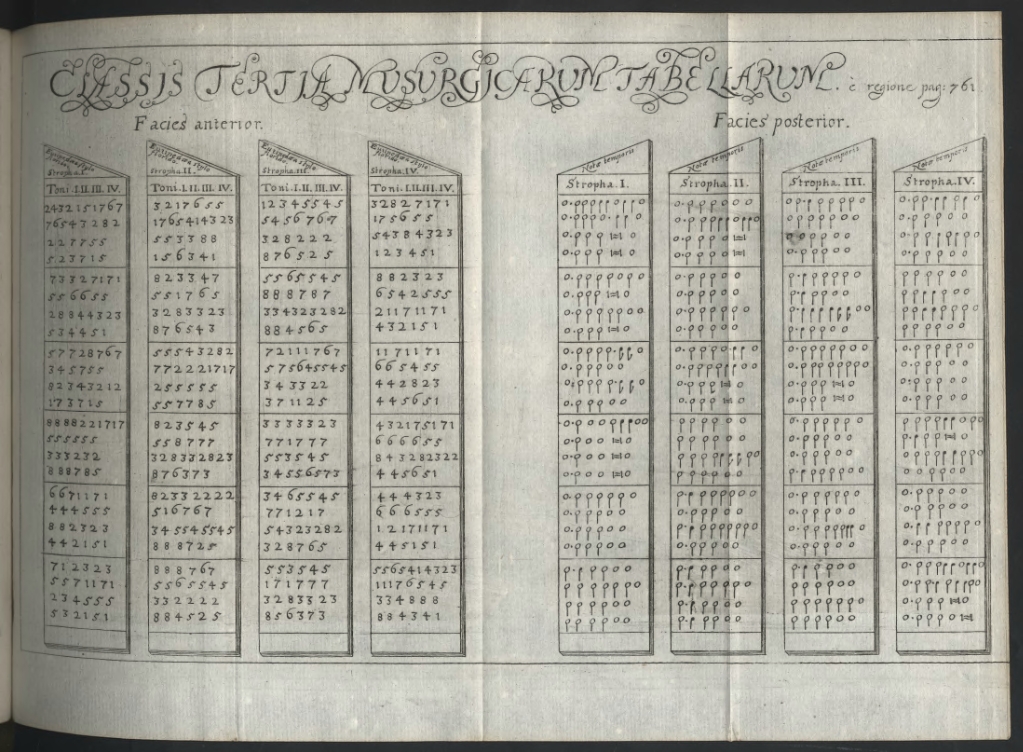 CLASSIS TERTIA MUSURGICARUM TABELLARUM. è regione pag: 761
Facies anterior.
Facies posterior.
Stropha. I.
Toni. I. II. III. IV.
2432151767
76547282
227755
523715
73327171
556655
28844323
534451
57728767
345755
82343212
173715
8888221717
555555
333232
888785
6671171
444555
882323
442151
712323
5571171
234555
532151
Stropha. II.
Toni. I. II. III. IV.
3217655
1765414323
553388
156341
823347
551765
3283323
876543
55543282
772221717
255555
557785
823545
558777
328332823
876373
82332222
516767
345545545
888725
888767
5565545
332222
884525
Stropha. III.
Toni. I. II. III. IV.
12345545
5456767
328222
876525
5565545
888787
334323282
884565
72111767
575645545
343322
371125
3333323
771777
553545
34556573
3465545
771217
54323282
328765
553545
171777
3283323
856373
Stropha. IV.
Toni. I. II. III. IV.
32827171
175655
54384323
123451
882323
6542555
21171171
432151
1171171
665455
442823
445651
432175171
666655
843282322
445651
444323
666555
12171171
445151
5565414323
11176545
334888
884341
Notæ temporis
Stropha. I.
Notæ temporis
Stropha. II.
Notæ temporis
Stropha. III.
Notæ temporis
Stropha. IV.